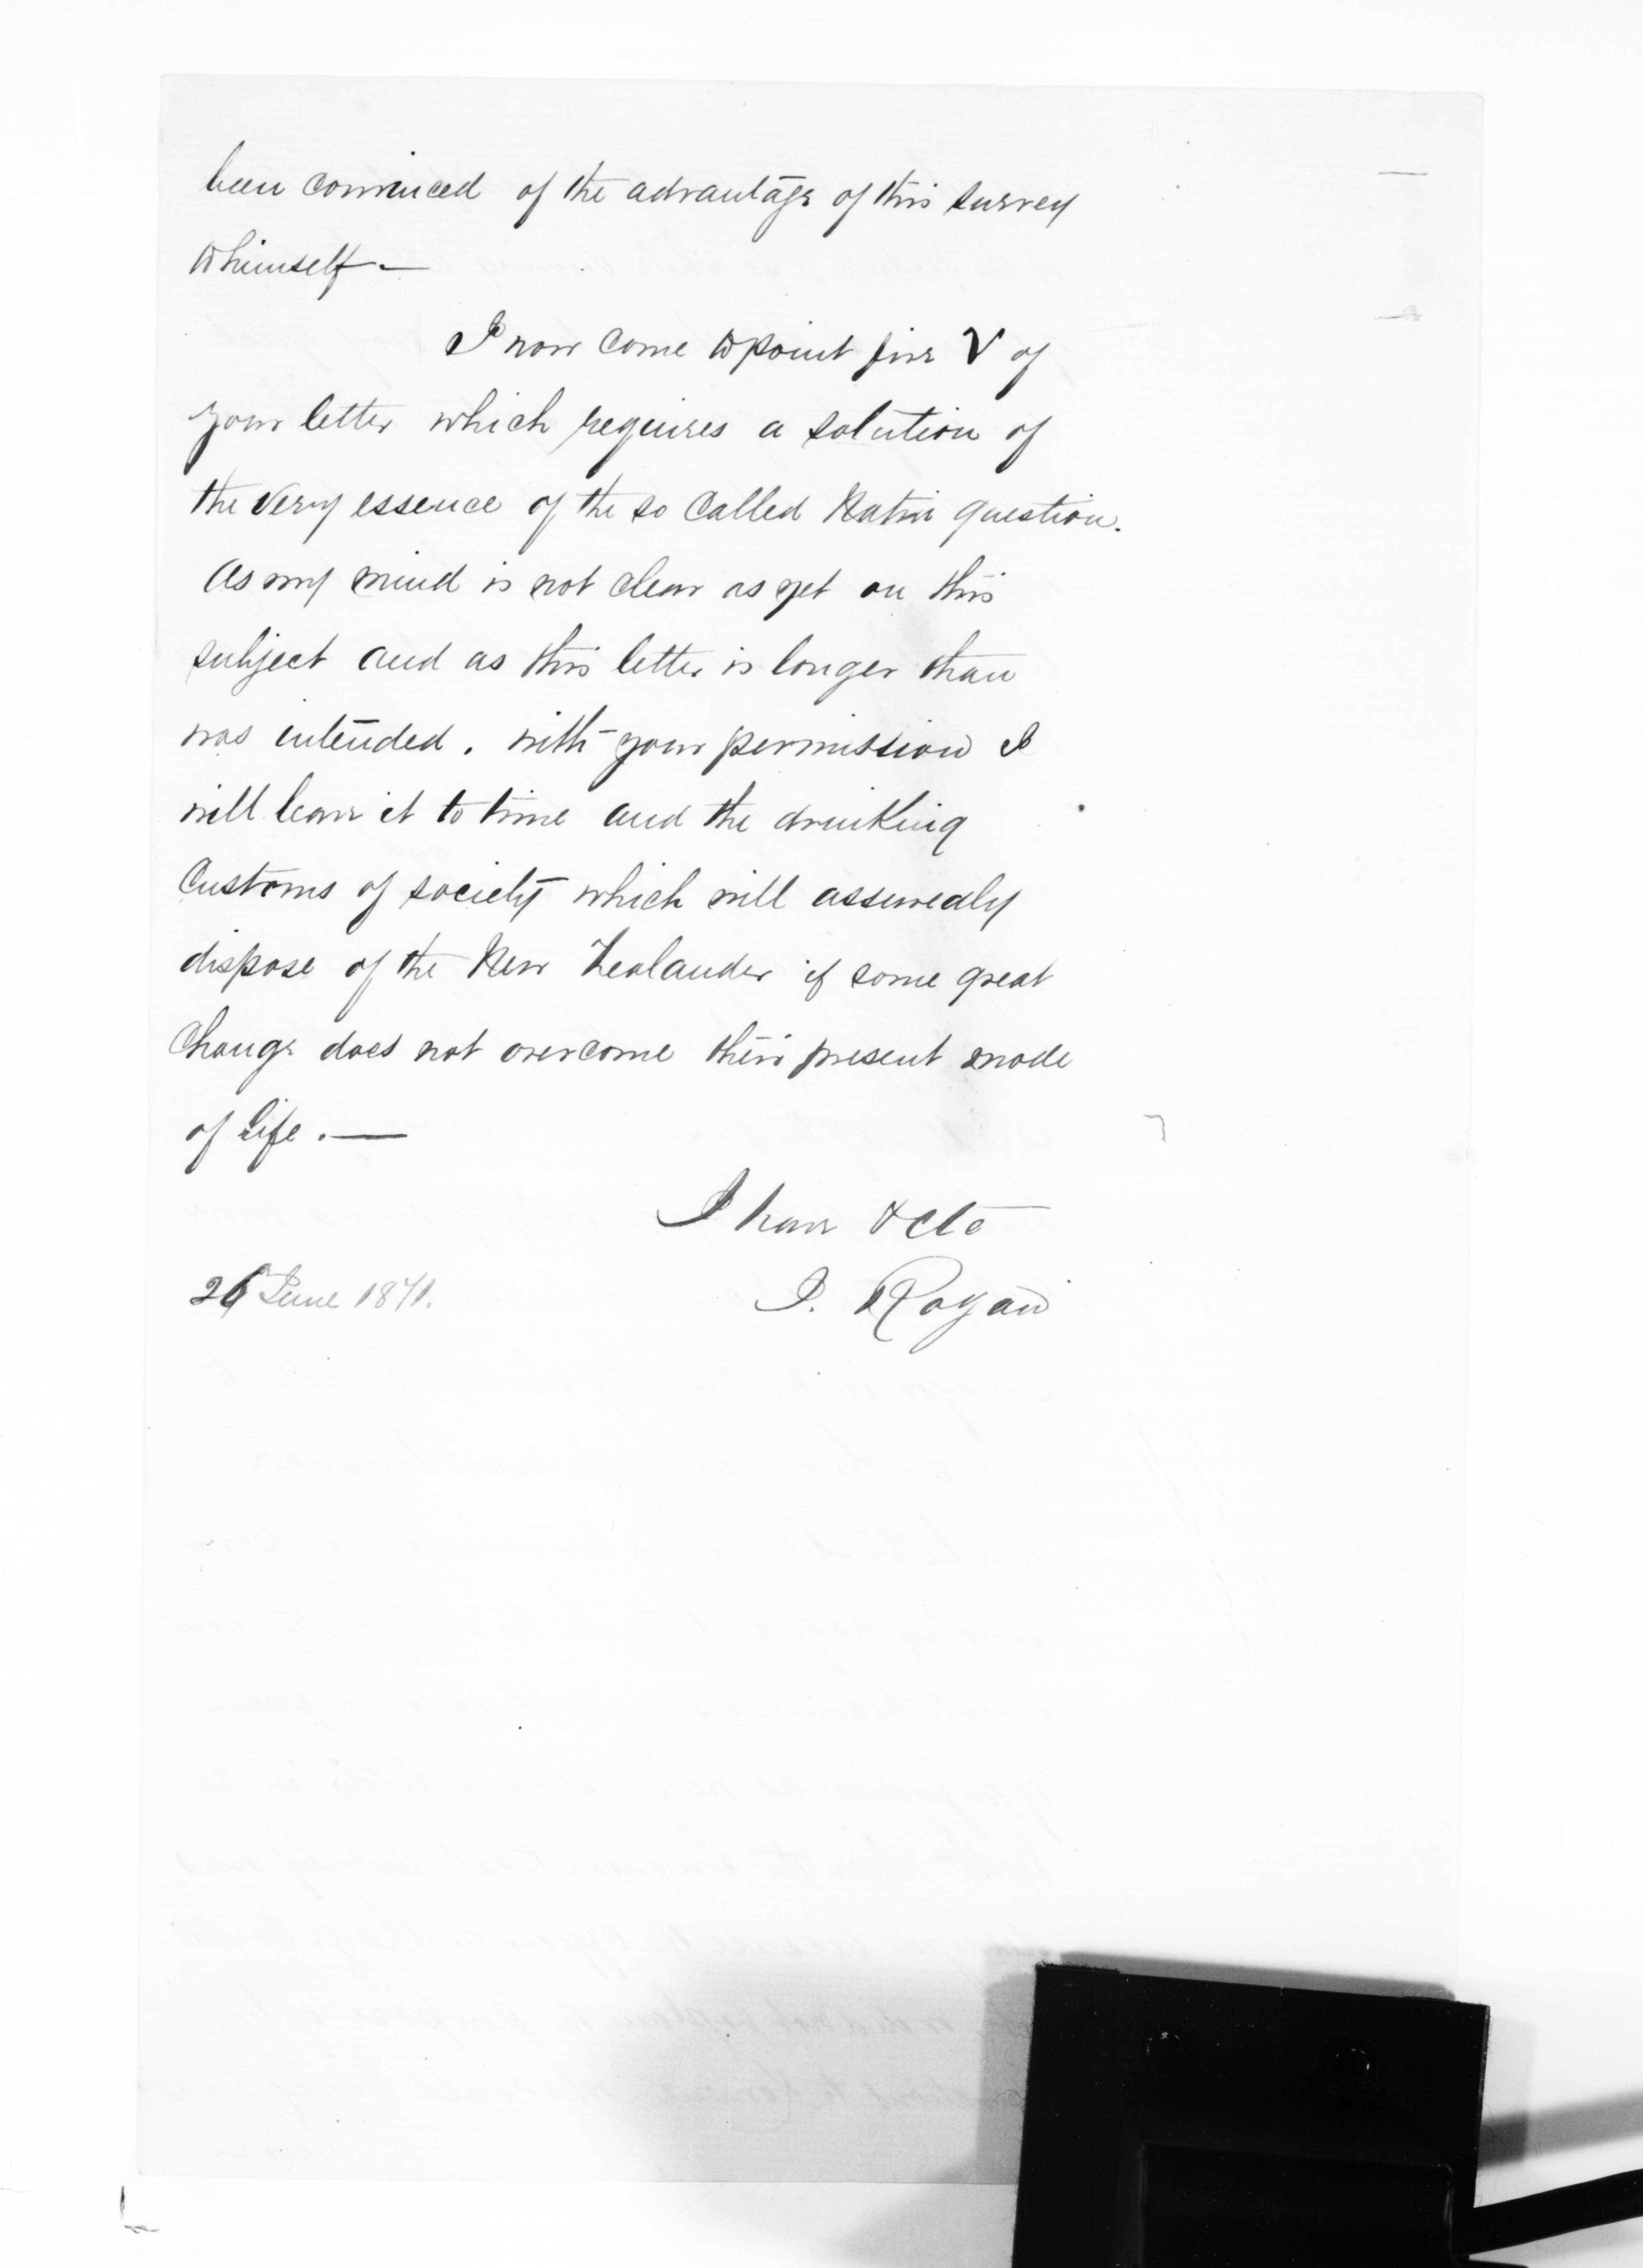 been convinced of the advantage of this survey
to himself —
I now come to point five V of
your letter which requires a solution of
the very essence of the so called Native question.
As my mind is not clear as yet on this
subject and as this letter is longer than
was intended. with your permission I
will leave it to time and the drinking
Customs of society which will assuredly
dispose of the New Zealander if some great
Change does not overcome their present mode
of life. —
I have &ctc
26 June 1871.
J. Rogan